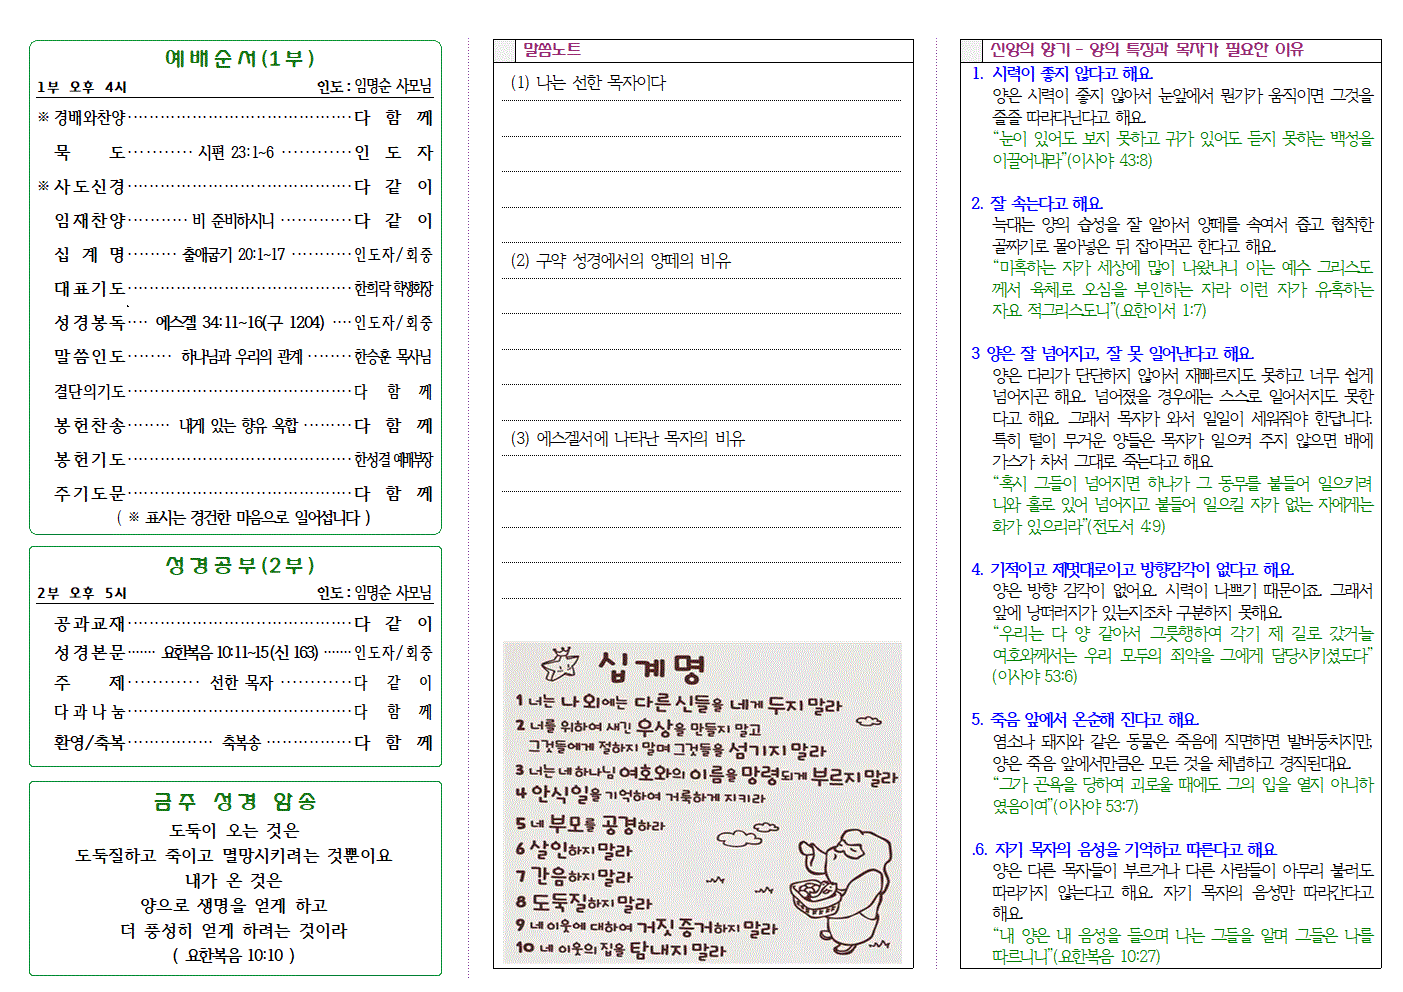 예배순서(1부)
1부 오후 4시 인도 : 임명순 사모님
※ 경배와찬양 다 함 께
묵 도 시편 23:1~6 인 도 자
※ 사도신경 다 같 이
임재찬양 비 준비하시니 다 같 이
십 계 명 출애굽기 20:1~17 인도자/회중
대표기도 한희락 학생회장
성경봉독 에스겔 34:11~16(구 1204) 인도자/회중
말씀인도 하나님과 우리의 관계 한승훈 목사님
결단의기도 다 함 께
봉헌찬송 내게 있는 향유 옥합 다 함 께
봉헌기도 한성결 예배부장
주기도문 다 함 께
( ※ 표시는 경건한 마음으로 일어섭니다 )
성경공부(2부)
2부 오후 5시 인도 : 임명순 사모님
공과교재 다 같 이
성경본문 요한복음 10:11~15(신 163) 인도자/회중
주 제 선한 목자 다 같 이
다과나눔 다 함 께
환영/축복 축복송 다 함 께
금주 성경 암송
도둑이 오는 것은
도둑질하고 죽이고 멸망시키려는 것뿐이요
내가 온 것은
양으로 생명을 얻게 하고
더 풍성히 얻게 하려는 것이라
( 요한복음 10:10 )
말씀노트
(1) 나는 선한 목자이다
(2) 구약 성경에서의 양떼의 비유
(3) 에스겔서에 나타난 목자의 비유
십계명
1 너는 나 외에는 다른 신들을 네게 두지 말라
2 너를 위하여 새긴 우상을 만들지 말고
그것들에게 절하지 말며 그것들을 섬기지 말라
3 너는 네 하나님 여호와의 이름을 망령되게 부르지 말라
4 안식일을 기억하여 거룩하게 지키라
5 네 부모를 공경하라
6 살인하지 말라
7 간음하지 말라
8 도둑질하지 말라
9 네 이웃에 대하여 거짓 증거하지 말라
10 네 이웃의 집을 탐내지 말라
신앙의 향기 - 양의 특징과 목자가 필요한 이유
1. 시력이 좋지 않다고 해요.
양은 시력이 좋지 않아서 눈앞에서 뭔가가 움직이면 그것을
줄줄 따라다닌다고 해요.
“눈이 있어도 보지 못하고 귀가 있어도 듣지 못하는 백성을
이끌어내라”(이사야 43:8)
2. 잘 속는다고 해요.
늑대는 양의 습성을 잘 알아서 양떼를 속여서 좁고 협착한
골짜기로 몰아넣은 뒤 잡아먹곤 한다고 해요.
“미혹하는 자가 세상에 많이 나왔나니 이는 예수 그리스도
께서 육체로 오심을 부인하는 자라 이런 자가 유혹하는
자요 적그리스도니”(요한이서 1:7)
3 양은 잘 넘어지고, 잘 못 일어난다고 해요.
양은 다리가 단단하지 않아서 재빠르지도 못하고 너무 쉽게
넘어지곤 해요. 넘어졌을 경우에는 스스로 일어서지도 못한
다고 해요. 그래서 목자가 와서 일일이 세워줘야 한답니다.
특히 털이 무거운 양들은 목자가 일으켜 주지 않으면 배에
가스가 차서 그대로 죽는다고 해요.
“혹시 그들이 넘어지면 하나가 그 동무를 붙들어 일으키려
니와 홀로 있어 넘어지고 붙들어 일으킬 자가 없는 자에게는
화가 있으리라”(전도서 4:9)
4. 기적이고 제멋대로이고 방향감각이 없다고 해요.
양은 방향 감각이 없어요. 시력이 나쁘기 때문이죠. 그래서
앞에 낭떠러지가 있는지조차 구분하지 못해요.
“우리는 다 양 같아서 그릇행하여 각기 제 길로 갔거늘
여호와께서는 우리 모두의 죄악을 그에게 담당시키셨도다”
(이사야 53:6)
5. 죽음 앞에서 온순해 진다고 해요.
염소나 돼지와 같은 동물은 죽음에 직면하면 발버둥치지만,
양은 죽음 앞에서만큼은 모든 것을 체념하고 경직된대요.
“그가 곤욕을 당하여 괴로울 때에도 그의 입을 열지 아니하
였음이여”(이사야 53:7)
.6. 자기 목자의 음성을 기억하고 따른다고 해요.
양은 다른 목자들이 부르거나 다른 사람들이 아무리 불러도
따라가지 않는다고 해요. 자기 목자의 음성만 따라간다고
해요.
“내 양은 내 음성을 들으며 나는 그들을 알며 그들은 나를
따르니니”(요한복음 10:27)